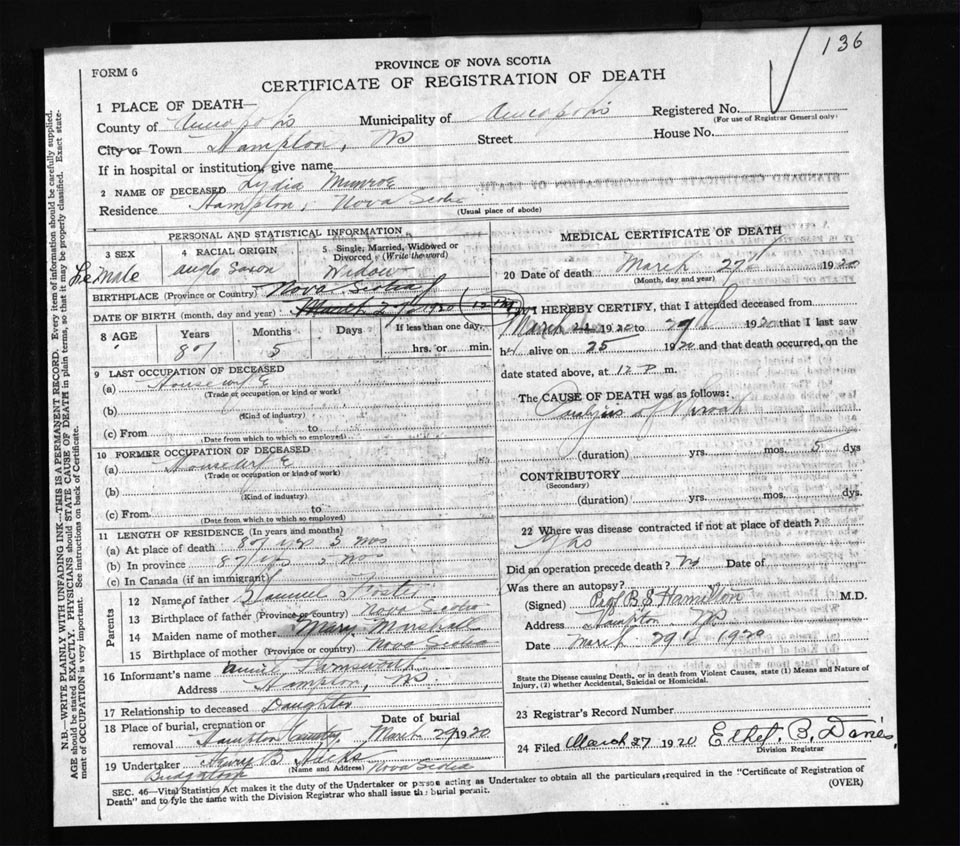 136
PROVINCE OF NOVA SCOTIA
FORM 6
CERTIFICATE OF REGISTRATION OF DEATH
1 PLACE OF DEATH—
County of Annapolis Municipality of Annapolis Registered No.
(For use of Registrar General only)
City or Town Hampton, NS Street House No.
If in hospital or institution, give name
2 NAME OF DECEASED Lydia Munroe
Residence Hampton, Nova Scotia
(Usual place of abode)
PERSONAL AND STATISTICAL INFORMATION
3 SEX 4 RACIAL ORIGIN 5 Single, Married, Widowed or Divorced (Write the word)
Female anglo Saxon Widow
BIRTHPLACE (Province or Country) Nova Scotia
DATE OF BIRTH (month, day and year) March 1920 (12 PM)
8 AGE Years Months Days If less than one day,
5 hrs. or min.
9 LAST OCCUPATION OF DECEASED
(a) Housewife
(Trade or occupation or kind or work)
(b)
(Kind of industry)
(c) From to
(Date from which to which so employed)
10 FORMER OCCUPATION OF DECEASED
(a) Housewife
(Trade or occupation or kind of work)
(b)
(Kind of industry)
(c) From to
(Date from which to which so employed)
11 LENGTH OF RESIDENCE (In years and months)
(a) At place of death yrs 5 mos
(b) In province yrs 5 mos
(c) In Canada (if an immigrant)
Parents
12 Name of father Samuel Foster
13 Birthplace of father (Province or country) Nova Scotia
14 Maiden name of mother Mary Marshall
15 Birthplace of mother (Province or country) Nova Scotia
16 Informant's name Farnsworth
Address Hampton, NS
17 Relationship to deceased Daughter
18 Place of burial, cremation or removal Hampton Date of burial March 29 1920
19 Undertaker B Hicks
(Name and Address) Nova Scotia
Bridgetown
MEDICAL CERTIFICATE OF DEATH
20 Date of death March 27th 1920
(Month, day and year)
I HEREBY CERTIFY, that I attended deceased from
March 1920 to 1920 that I last saw
her alive on 25 1920 and that death occurred, on the
date stated above, at 12 P m.
The CAUSE OF DEATH was as follows:
Paralysis of Throat
(duration) yrs. mos. 5 dys
CONTRIBUTORY
(Secondary)
(duration) yrs. mos. dys.
22 Where was disease contracted if not at place of death?
Did an operation precede death? No Date of
Was there an autopsy?
(Signed) B.S. Hamilton M.D.
Address Hampton NS
Date March 29th 1920
State the Disease causing Death, or in death from Violent Causes, state (1) Means and Nature of
Injury, (2) whether Accidental, Suicidal or Homicidal.
23 Registrar's Record Number
24 Filed March 27 1920 Ethel B. Davies
Division Registrar
SEC. 46—Vital Statistics Act makes it the duty of the Undertaker or person acting as Undertaker to obtain all the particulars required in the "Certificate of Registration of
Death" and to fyle the same with the Division Registrar who shall issue the burial permit. (OVER)
N.B.—WRITE PLAINLY WITH UNFADING INK—THIS IS A PERMANENT RECORD. Every item of information should be carefully supplied.
AGE should be stated EXACTLY. PHYSICIANS should STATE CAUSE OF DEATH in plain terms, so that it may be properly classified. Exact state-
ment of OCCUPATION is very important. See instructions on back of Certificate.